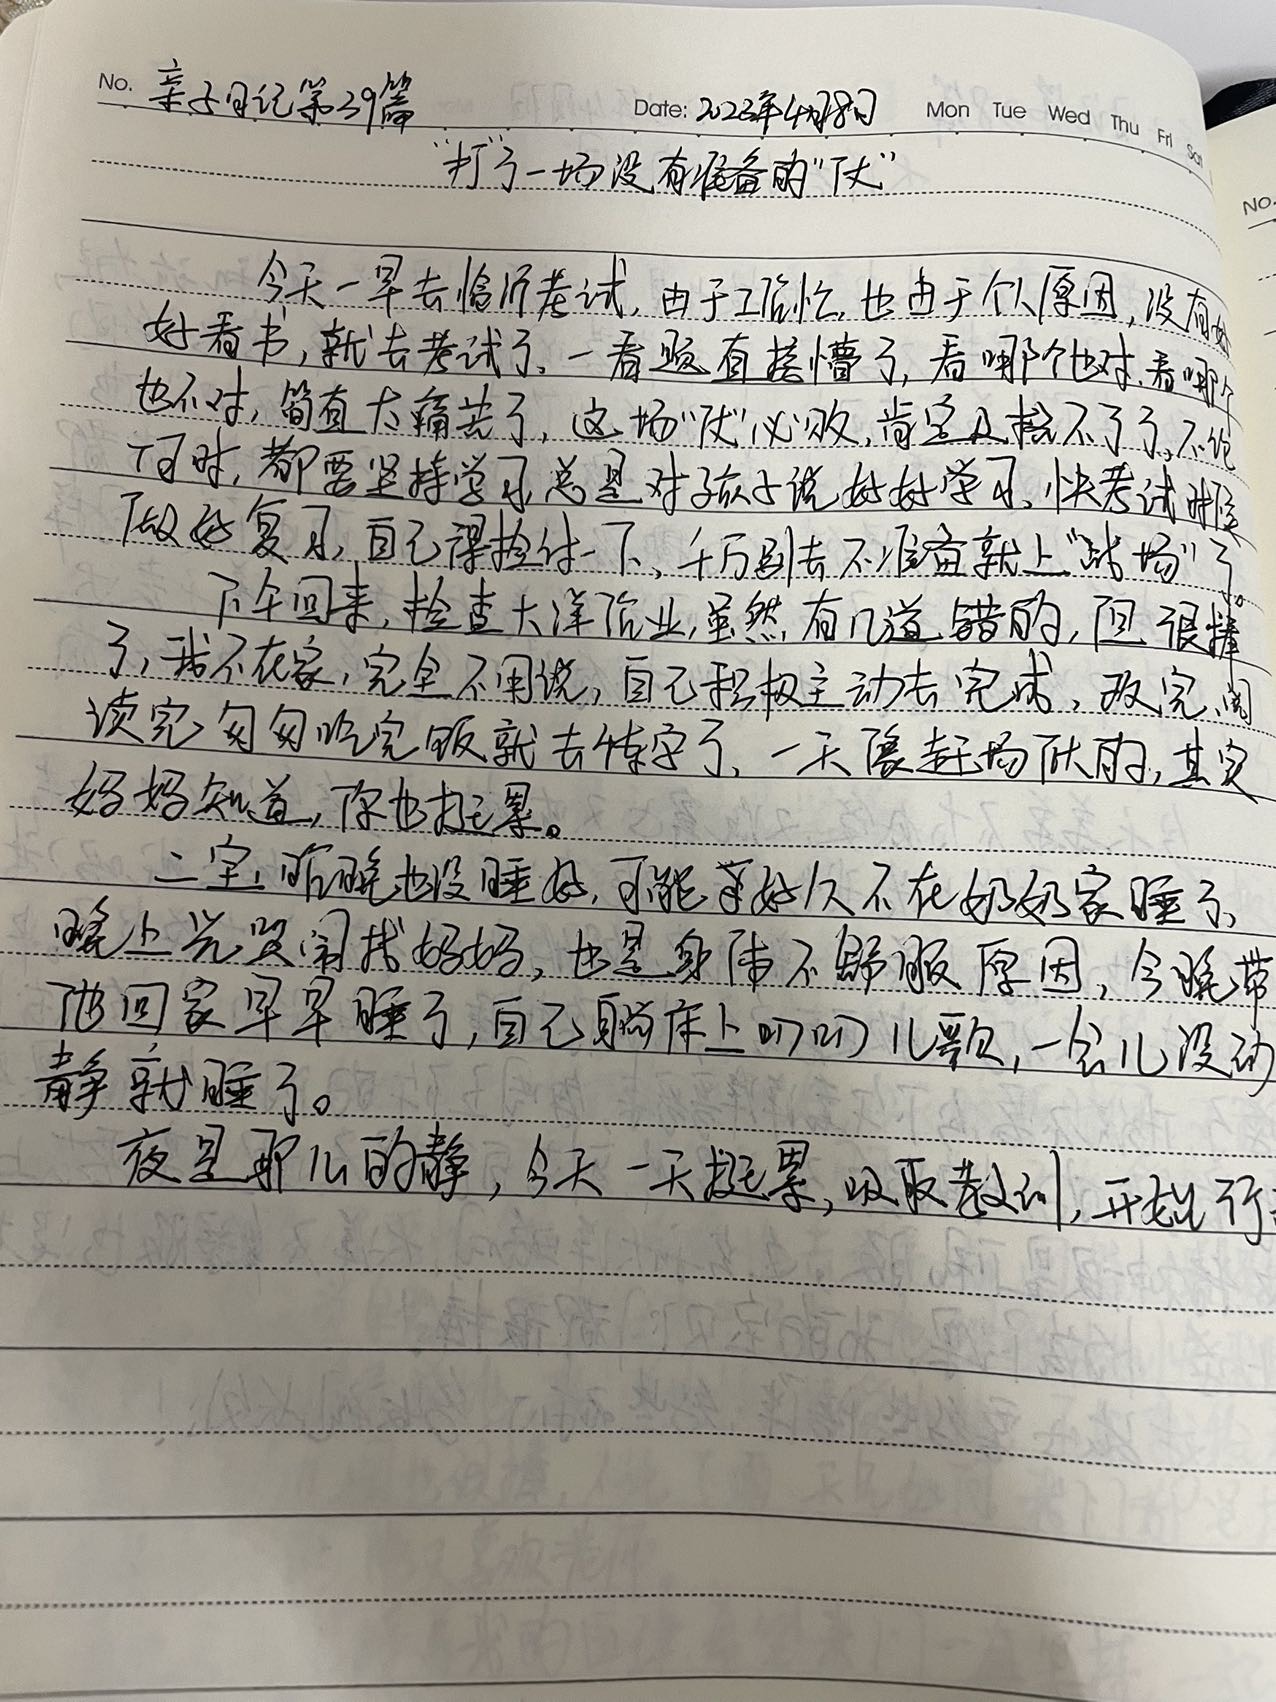 No. 亲子日记第39篇 Date: 2023年4月8日 Mon Tue Wed Thu Fri Sat
"打"了一场没有准备的"仗"
No.
今天一早去临沂考试,由于工作忙,也由于个人原因,没有好
好看书,就去考试了、一看题直接懵了,看哪个也对、看哪个
也不对,简直太痛苦了,这场"仗"必败,肯定及格不了了、不论
何时,都要坚持学习,总是对孩子说好好学习、快考试时候
做好复习,自己得检付一下、千万别去不准备就上"战场"了。
下午回来,检查大洋作业,虽然有几道错的,但很棒
了,我不在家,完全不用说,自己积极主动去完成、改完、阅
读完、匆匆吃完饭就去练字了、一天像赶场似的,其实
妈妈知道,你也挺累。
二宝,昨晚也没睡好,可能是好久不在奶奶家睡了、
晚上光哭闹找妈妈,也是身体不舒服原因,今晚带
他回家早早睡了,自己躺床上叨叨儿歌,一会儿没动
静就睡了。
夜是那么的静,今天一天挺累,吸取教训,开始行